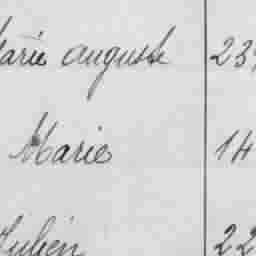 Marie auguste 23
Marie 14
Julien 22